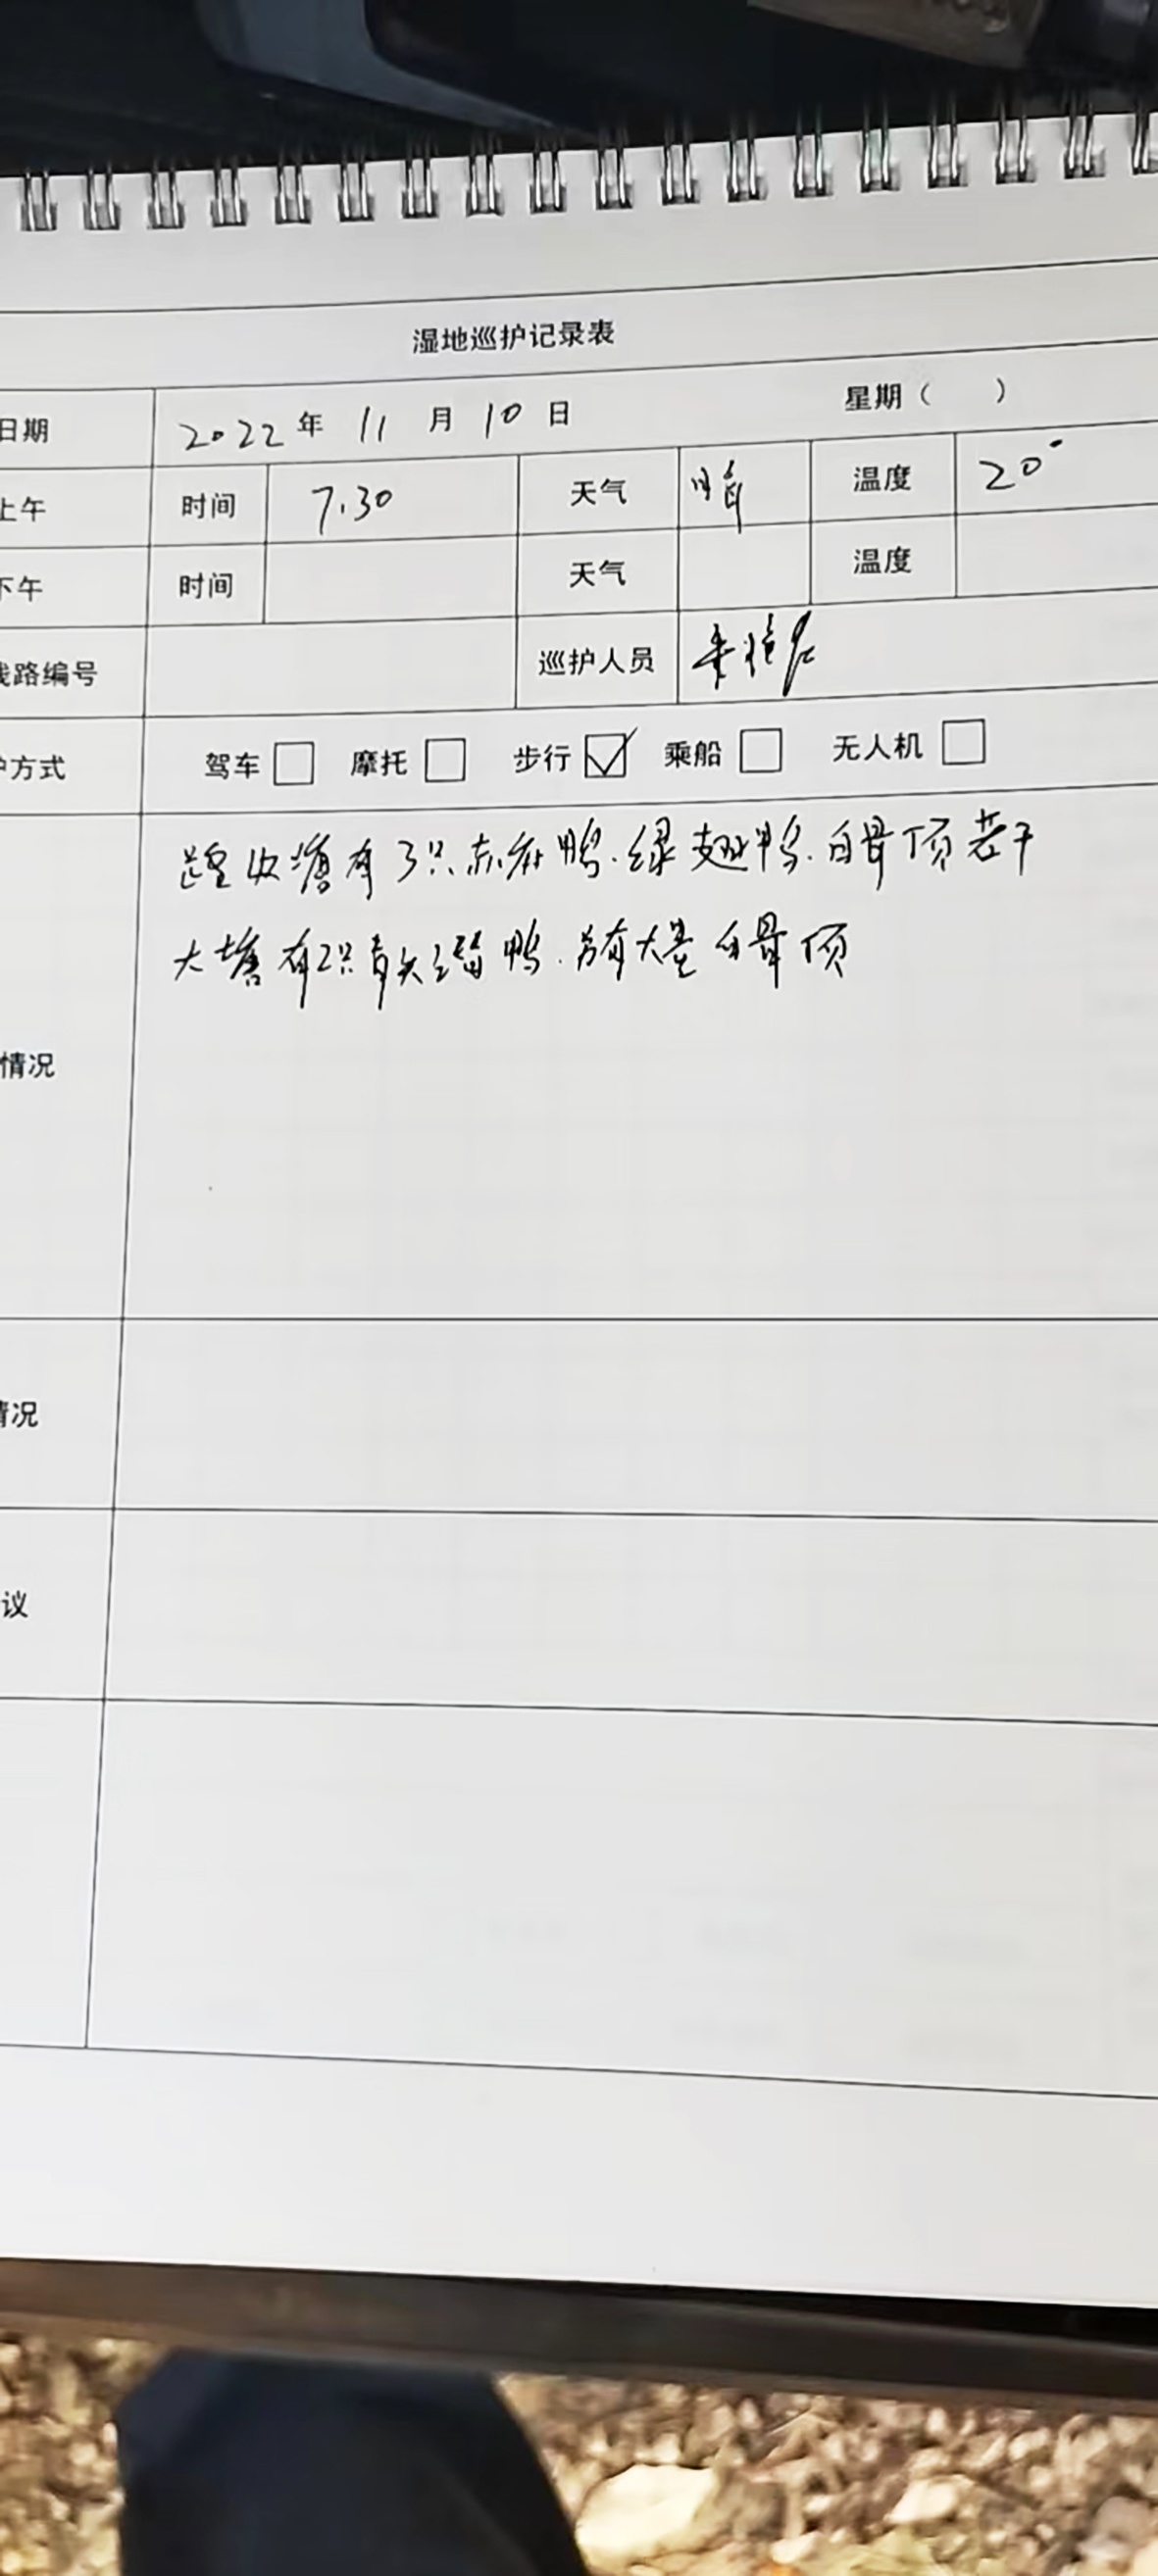 湿地巡护记录表
日期 2022年 11月 10日 星期( )
上午 时间 7.30 天气 晴 温度 20°
下午 时间 天气 温度
线路编号 巡护人员
护方式 驾车 □ 摩托 □ 步行 ☑ 乘船 □ 无人机 □
塘有3只赤麻鸭.绿翅鸭.白骨顶若干
大塘有2只青头潜鸭.另有大量白骨顶
情况
情况
议